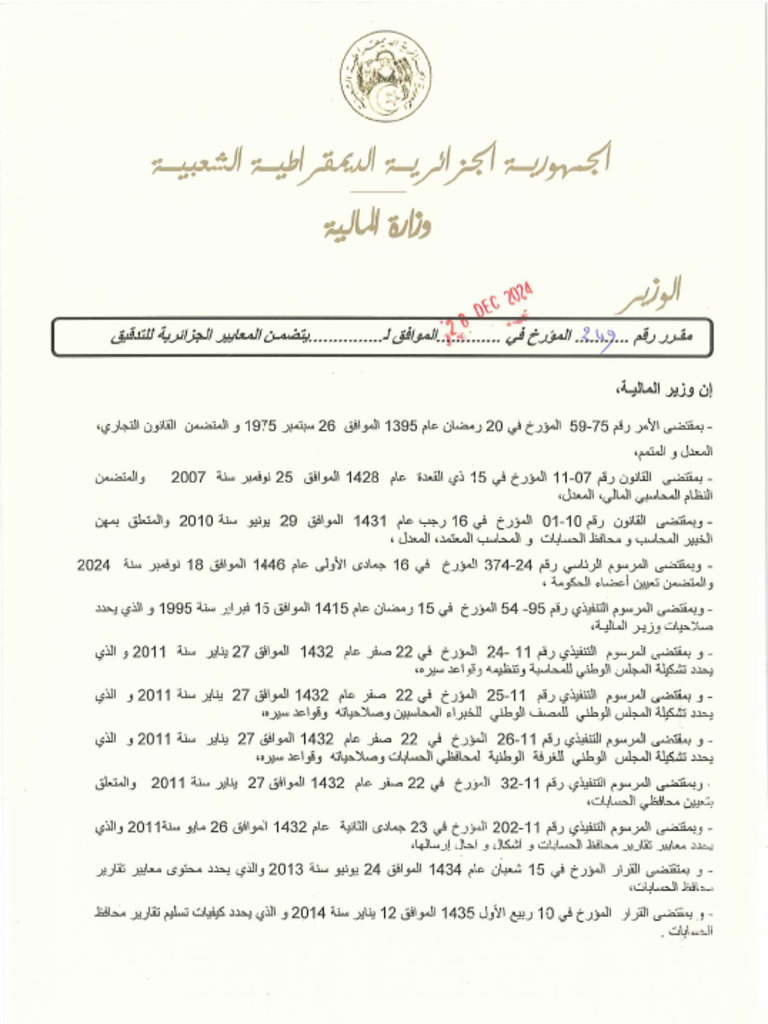 الجمهورية الجزائرية الديمقراطية الشعبية
وزارة المالية
الوزير
28 DEC 2024
مقرر رقم ...249... المؤرخ في ............الموافق لـ...............يتضمن المعايير الجزائرية للتدقيق
إن وزير المالية،
- بمقتضى الأمر رقم 75-59 المؤرخ في 20 رمضان عام 1395 الموافق 26 سبتمبر 1975 و المتضمن القانون التجاري،
المعدل و المتمم،
- بمقتضى القانون رقم 07-11 المؤرخ في 15 ذي القعدة عام 1428 الموافق 25 نوفمبر سنة 2007 والمتضمن
النظام المحاسبي المالي، المعدل،
- وبمقتضى القانون رقم 10-01 المؤرخ في 16 رجب عام 1431 الموافق 29 يونيو سنة 2010 والمتعلق بمهن
الخبير المحاسب و محافظ الحسابات و المحاسب المعتمد، المعدل ،
- وبمقتضى المرسوم الرئاسي رقم 24-374 المؤرخ في 16 جمادى الأولى عام 1446 الموافق 18 نوفمبر سنة 2024
والمتضمن تعيين أعضاء الحكومة ،
- وبمقتضى المرسوم التنفيذي رقم 95- 54 المؤرخ في 15 رمضان عام 1415 الموافق 15 فبراير سنة 1995 و الذي يحدد
صلاحيات وزير المالية،
- و بمقتضى المرسوم التنفيذي رقم 11 -24 المؤرخ في 22 صفر عام 1432 الموافق 27 يناير سنة 2011 و الذي
يحدد تشكيلة المجلس الوطني للمحاسبة وتنظيمه وقواعد سيره،
- و بمقتضى المرسوم التنفيذي رقم 11-25 المؤرخ في 22 صفر عام 1432 الموافق 27 يناير سنة 2011 و الذي
يحدد تشكيلة المجلس الوطني للمصف الوطني للخبراء المحاسبين وصلاحياته وقواعد سيره،
- و بمقتضى المرسوم التنفيذي رقم 11-26 المؤرخ في 22 صفر عام 1432 الموافق 27 يناير سنة 2011 و الذي
يحدد تشكيلة المجلس الوطني للغرفة الوطنية لمحافظي الحسابات وصلاحياته وقواعد سيره،
- وبمقتضى المرسوم التنفيذي رقم 11-32 المؤرخ في 22 صفر عام 1432 الموافق 27 يناير سنة 2011 والمتعلق
بتعيين محافظي الحسابات،
- وبمقتضى المرسوم التنفيذي رقم 11-202 المؤرخ في 23 جمادى الثانية عام 1432 الموافق 26 مايو سنة2011 والذي
يحدد معايير تقارير محافظ الحسابات و أشكال و آجال إرسالها،
- و بمقتضى القرار المؤرخ في 15 شعبان عام 1434 الموافق 24 يونيو سنة 2013 والذي يحدد محتوى معايير تقارير
محافظ الحسابات،
- و بمقتضى القرار المؤرخ في 10 ربيع الأول 1435 الموافق 12 يناير سنة 2014 و الذي يحدد كيفيات تسليم تقارير محافظ
الحسابات .